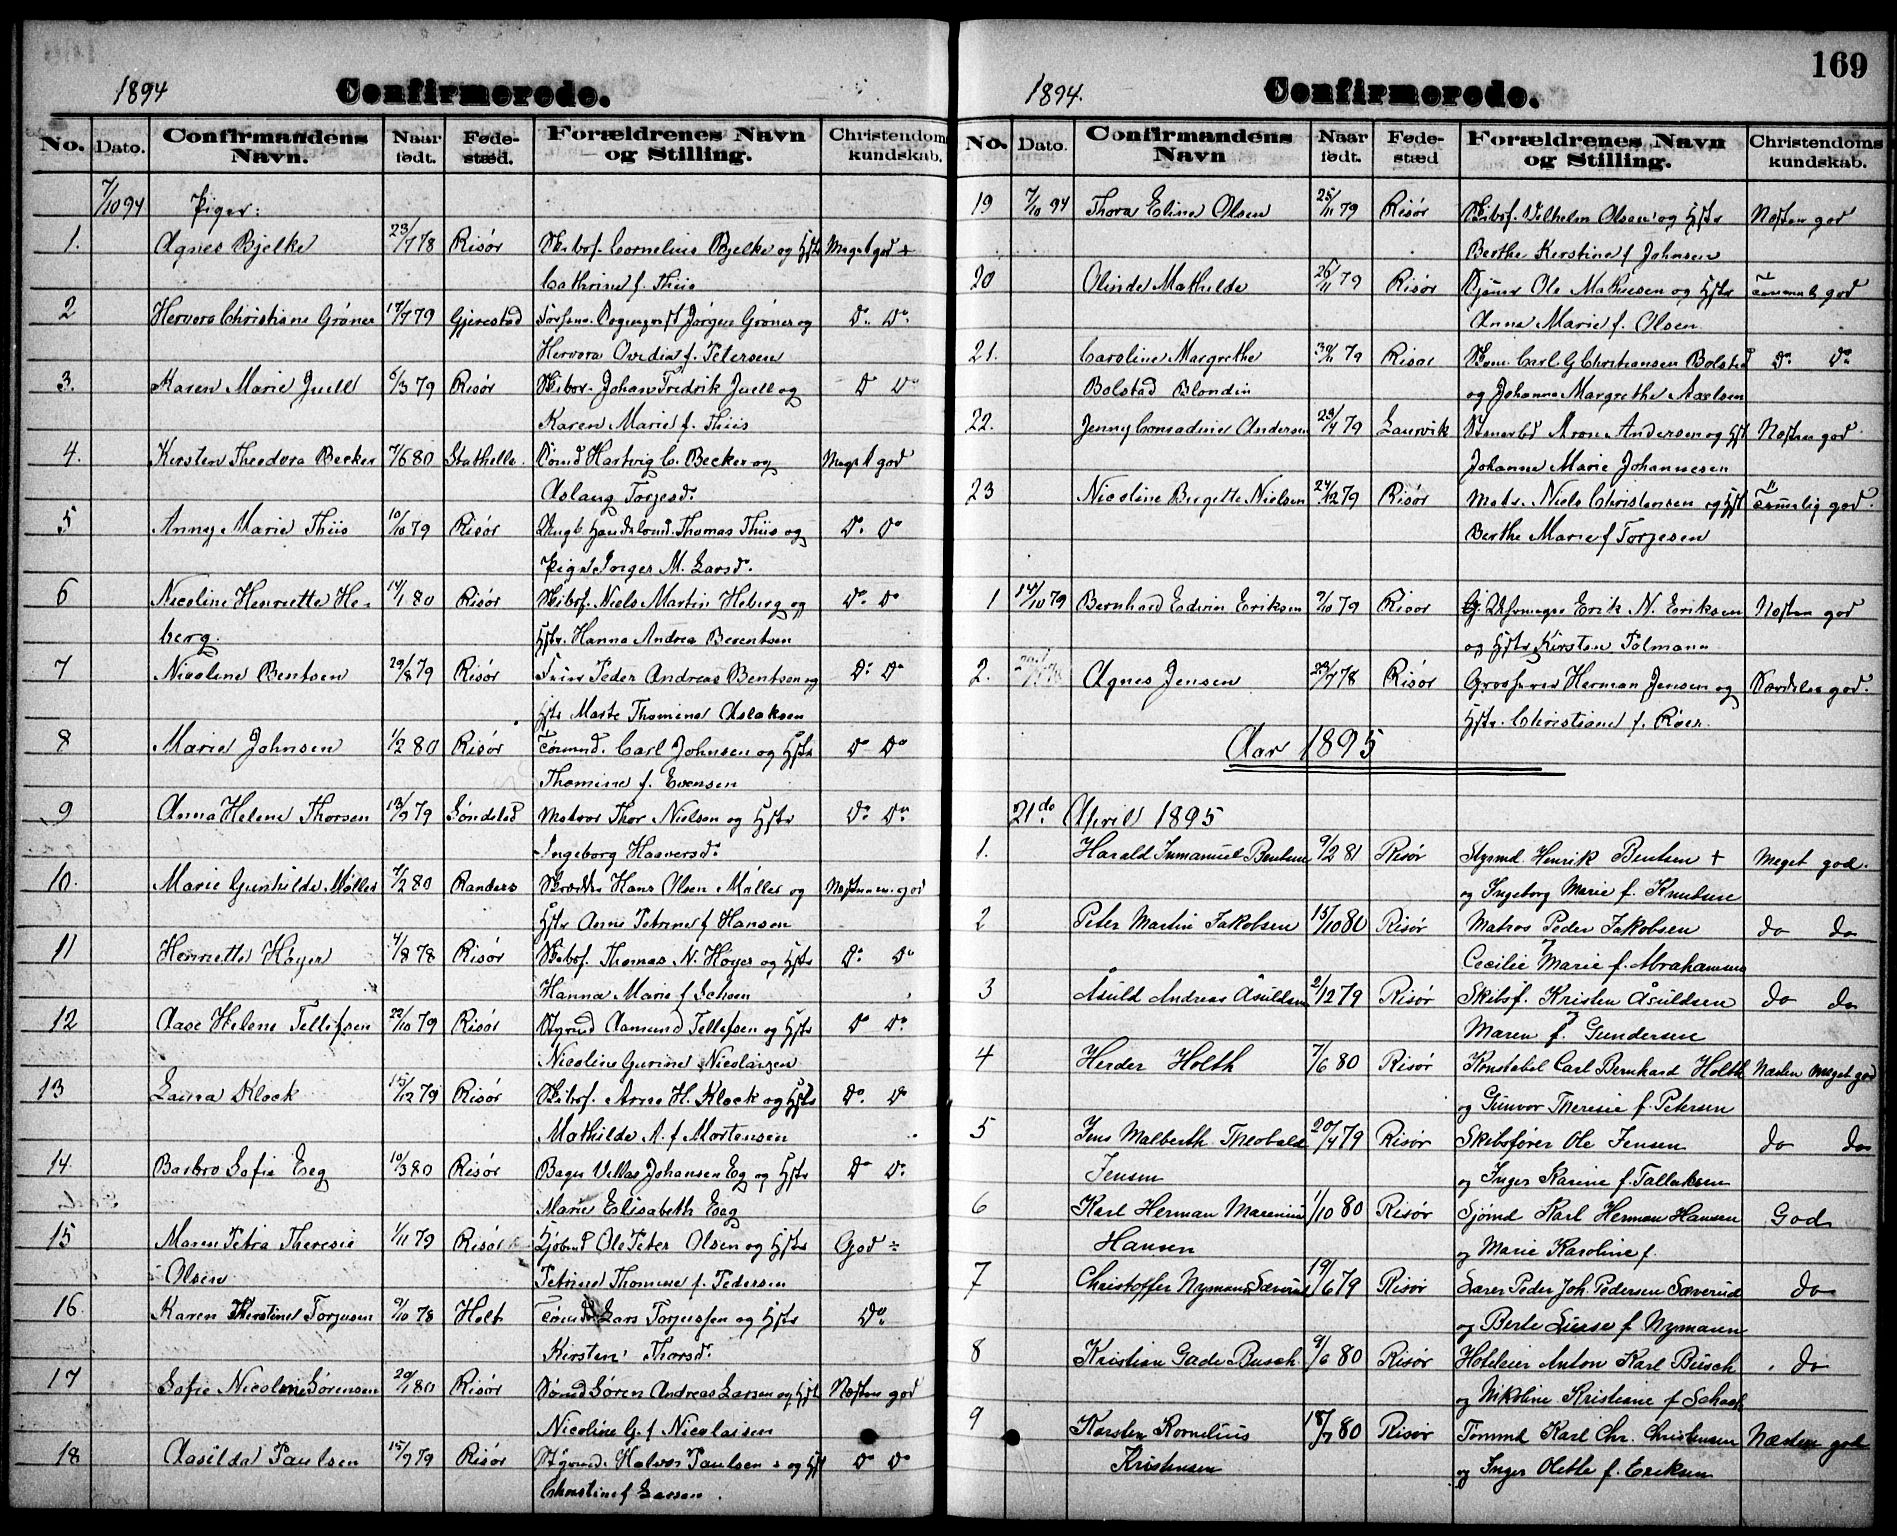 1894
Confirmerede.
No. Dato. Confirmandens Navn. Naar født. Føde-stæd. Forældrenes Navn og Stilling. Christendoms kundskab.
7/10 94 Piger:
1. Agnes Bjelke 23/7 78 Risør Skibsf. Cornelius Bjelke og Hstr Meget god +
Cathrine f. Thiis
2 Hervora Christiane Grøner 17/7 79 Gjerestad Jørgen Grøner og Do Do
Hervora Ovidia f. Petersen
3. Karen Marie Juell 6/3 79 Risør Johan Fredrik Juell og Do Do
Karen Marie f. Thiis
4. Kirsten Theodora Becker 7/6 80 Stathelle. Tømd Hartvig C. Becker og Meget god
Aslaug Torjesd.
5 Anny Marie Thiis 10/10 79 Risør Thomas Thiis og Do Do
Pige Inger M. Larsd.
6 Nicoline Henriette He- 14/1 80 Risør Skibsf. Niels Martin Heberg og Do Do
berg. Hstr. Hanna Andrea Berentsen
7 Nicoline Bentsen 29/8 79 Risør Peder Andreas Bentsen og Do Do
Hstr Marte Thomine Aslaksen
8 Marie Johnsen 1/2 80 Risør Tømmd. Carl Johnsen og Hstr Do Do
Thomine f. Evensen
9 Anna Helene Thorsen 13/9 79 Søndeled Matros Thor Nielsen og Hstr Do Do
Ingeborg Haaversd.
10. Marie Gunhilde Møller 4/2 80 Randers Skrædder Hans Olsen Møller og god
Hstr Anne Petrine f Hansen
11 Henriette Høyer 4/8 78 Risør Skibsf. Thomas N. Høyer og Hstr Do Do
Hanna Marie f Schoen
12 Aase Helene Tellefsen 22/10 79 Risør Styrmd Aamund Tellefsen og Hstr Do Do
Nicoline Gurine Nicolaisen
13 Laura Klock 15/12 79 Risør Skibsf. Arne H. Klock og Hstr Do Do
Mathilde A. f Mortensen
14. Barbro Sofie Eeg 10/3 80 Risør Bager Villas Johansen Eg og Hstr Do Do
Marie Elisabeth Eeg
15 Maren Petra Theresie 1/11 79 Risør Sjømd Ole Peter Olsen og Hstr God
Olsen Petrine Thomine f. Pedersen
16. Karen Kirstine Torjusen 9/10 78 Holt Tømd Lars Torjussen og Hstr Do
Kirsten Thorsd.
17 Sofie Nicoline Sørensen 20/1 80 Risør Sømd Søren Andreas Larsen og Hstr Næsten god
Nicoline G. f Nicolaisen
18 Aasilda Paulsen 15/9 79 Risør Styrmd. Halvor Paulsen og Hst Do Do
Christine f Larsen.
169
1894.
Confirmerede.
No. Dato. Confirmandens Navn Naar født. Føde-stæd Forældrenes Navn og Stilling. Christendoms kundskab.
19 7/10 94 Thora Eline Olsen 25/11 79 Risør Skibsf. Vilhelm Olsen og Hstr Næsten god
Berthe Kerstine f Johnsen
20 Olinde Mathilde 26/11 79 Risør Ole Mathiesen og Hstr Temmelig god
Anna Marie f. Olsen
21. Caroline Margrethe 30/11 79 Risør Carl G Christiansen Bolstad Do Do
Bolstad Blondin og Johanne Margrethe Axelsen
22. Jenny Conradine Andersen 29/4 79 Laurvik Aron Andersen og Hst Næsten god
Johanne Marie Johannesen
23 Nicoline Birgette Nielsen 24/12 79 Risør Matr. Niels Christensen og Hst Temmelig god.
Berthe Marie f Torjesen
1 14/10 79 Bernhard Edvin Eriksen 9/10 79 Risør Erik N. Eriksen Næsten god
og Hstr Kirsten Tolmann
2. Agnes Jensen 23/7 78 Risør Grosserer Herman Jensen og Særdeles god.
Hstr. Christiane f. Röer.
Aar 1895
21de April 1895
1. Harald Immanuel Bentsen 9/2 81 Risør Styrmd Henrik Bentsen + Meget god.
og Ingeborg Marie f. Knutsen
2 Peter Martin Jakobsen 15/10 80 Risør Matros Peder Jakobsen do do
Cecilie Marie f. Abrahamsen
3 Åsuld Andreas Åsuldsen 2/12 79 Risør Skibsf. Kristen Åsuldsen do do
Maren f. Gundersen
4 Herder Holth 7/6 80 Risør Konstabel Carl Bernhard Holth Næsten meget god
og Gunvor Theresie f. Petersen
5 Jens Malberth Theobald 20/4 79 Risør Skibsfører Ole Jensen do do
Jensen og Inger Karine f. Tallaksen
6 Karl Herman Marenius 1/10 80 Risør Sjømd Karl Herman Hansen God
Hansen og Marie Karoline f.
7 Christoffer Nymann Sæverud 19/6 79 Risør Lærer Peder Joh. Pedersen Sæverud do
og Berte Lurse f Nymann
8 Kristian Gade Busch 9/6 80 Risør Hoteleier Anton Karl Busch do
og Nikoline Kristiane f Schack
9 Karsten Kornelius 18/7 80 Risør Tømmd Karl Chr. Christensen Næsten god
Kristensen og Inger Olette f. Eriksen